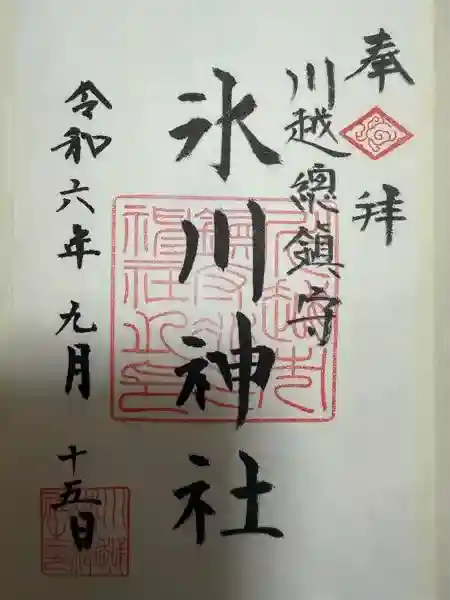 奉拝
川越總鎮守
氷川神社
令和六年九月十五日